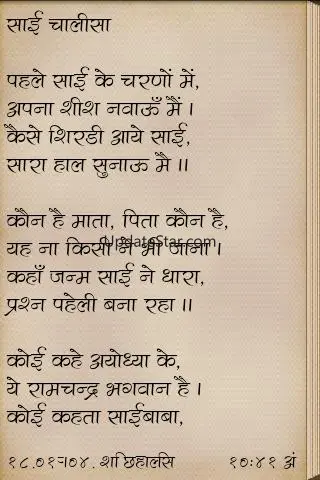 साई चालीसा
पहले साई के चरणों में,
अपना शीश नवाऊँ मैं ।
कैसे शिरडी आये साई,
सारा हाल सुनाऊ मै ।।
कौन है माता, पिता कौन है,
यह ना किसी ने भी जाना ।
UpdateStar.com
कहाँ जन्म साई ने धारा,
प्रश्न पहेली बना रहा ।।
कोई कहे अयोध्या के,
ये रामचन्द्र भगवान है ।
कोई कहता साईबाबा,
१०:४१ अं